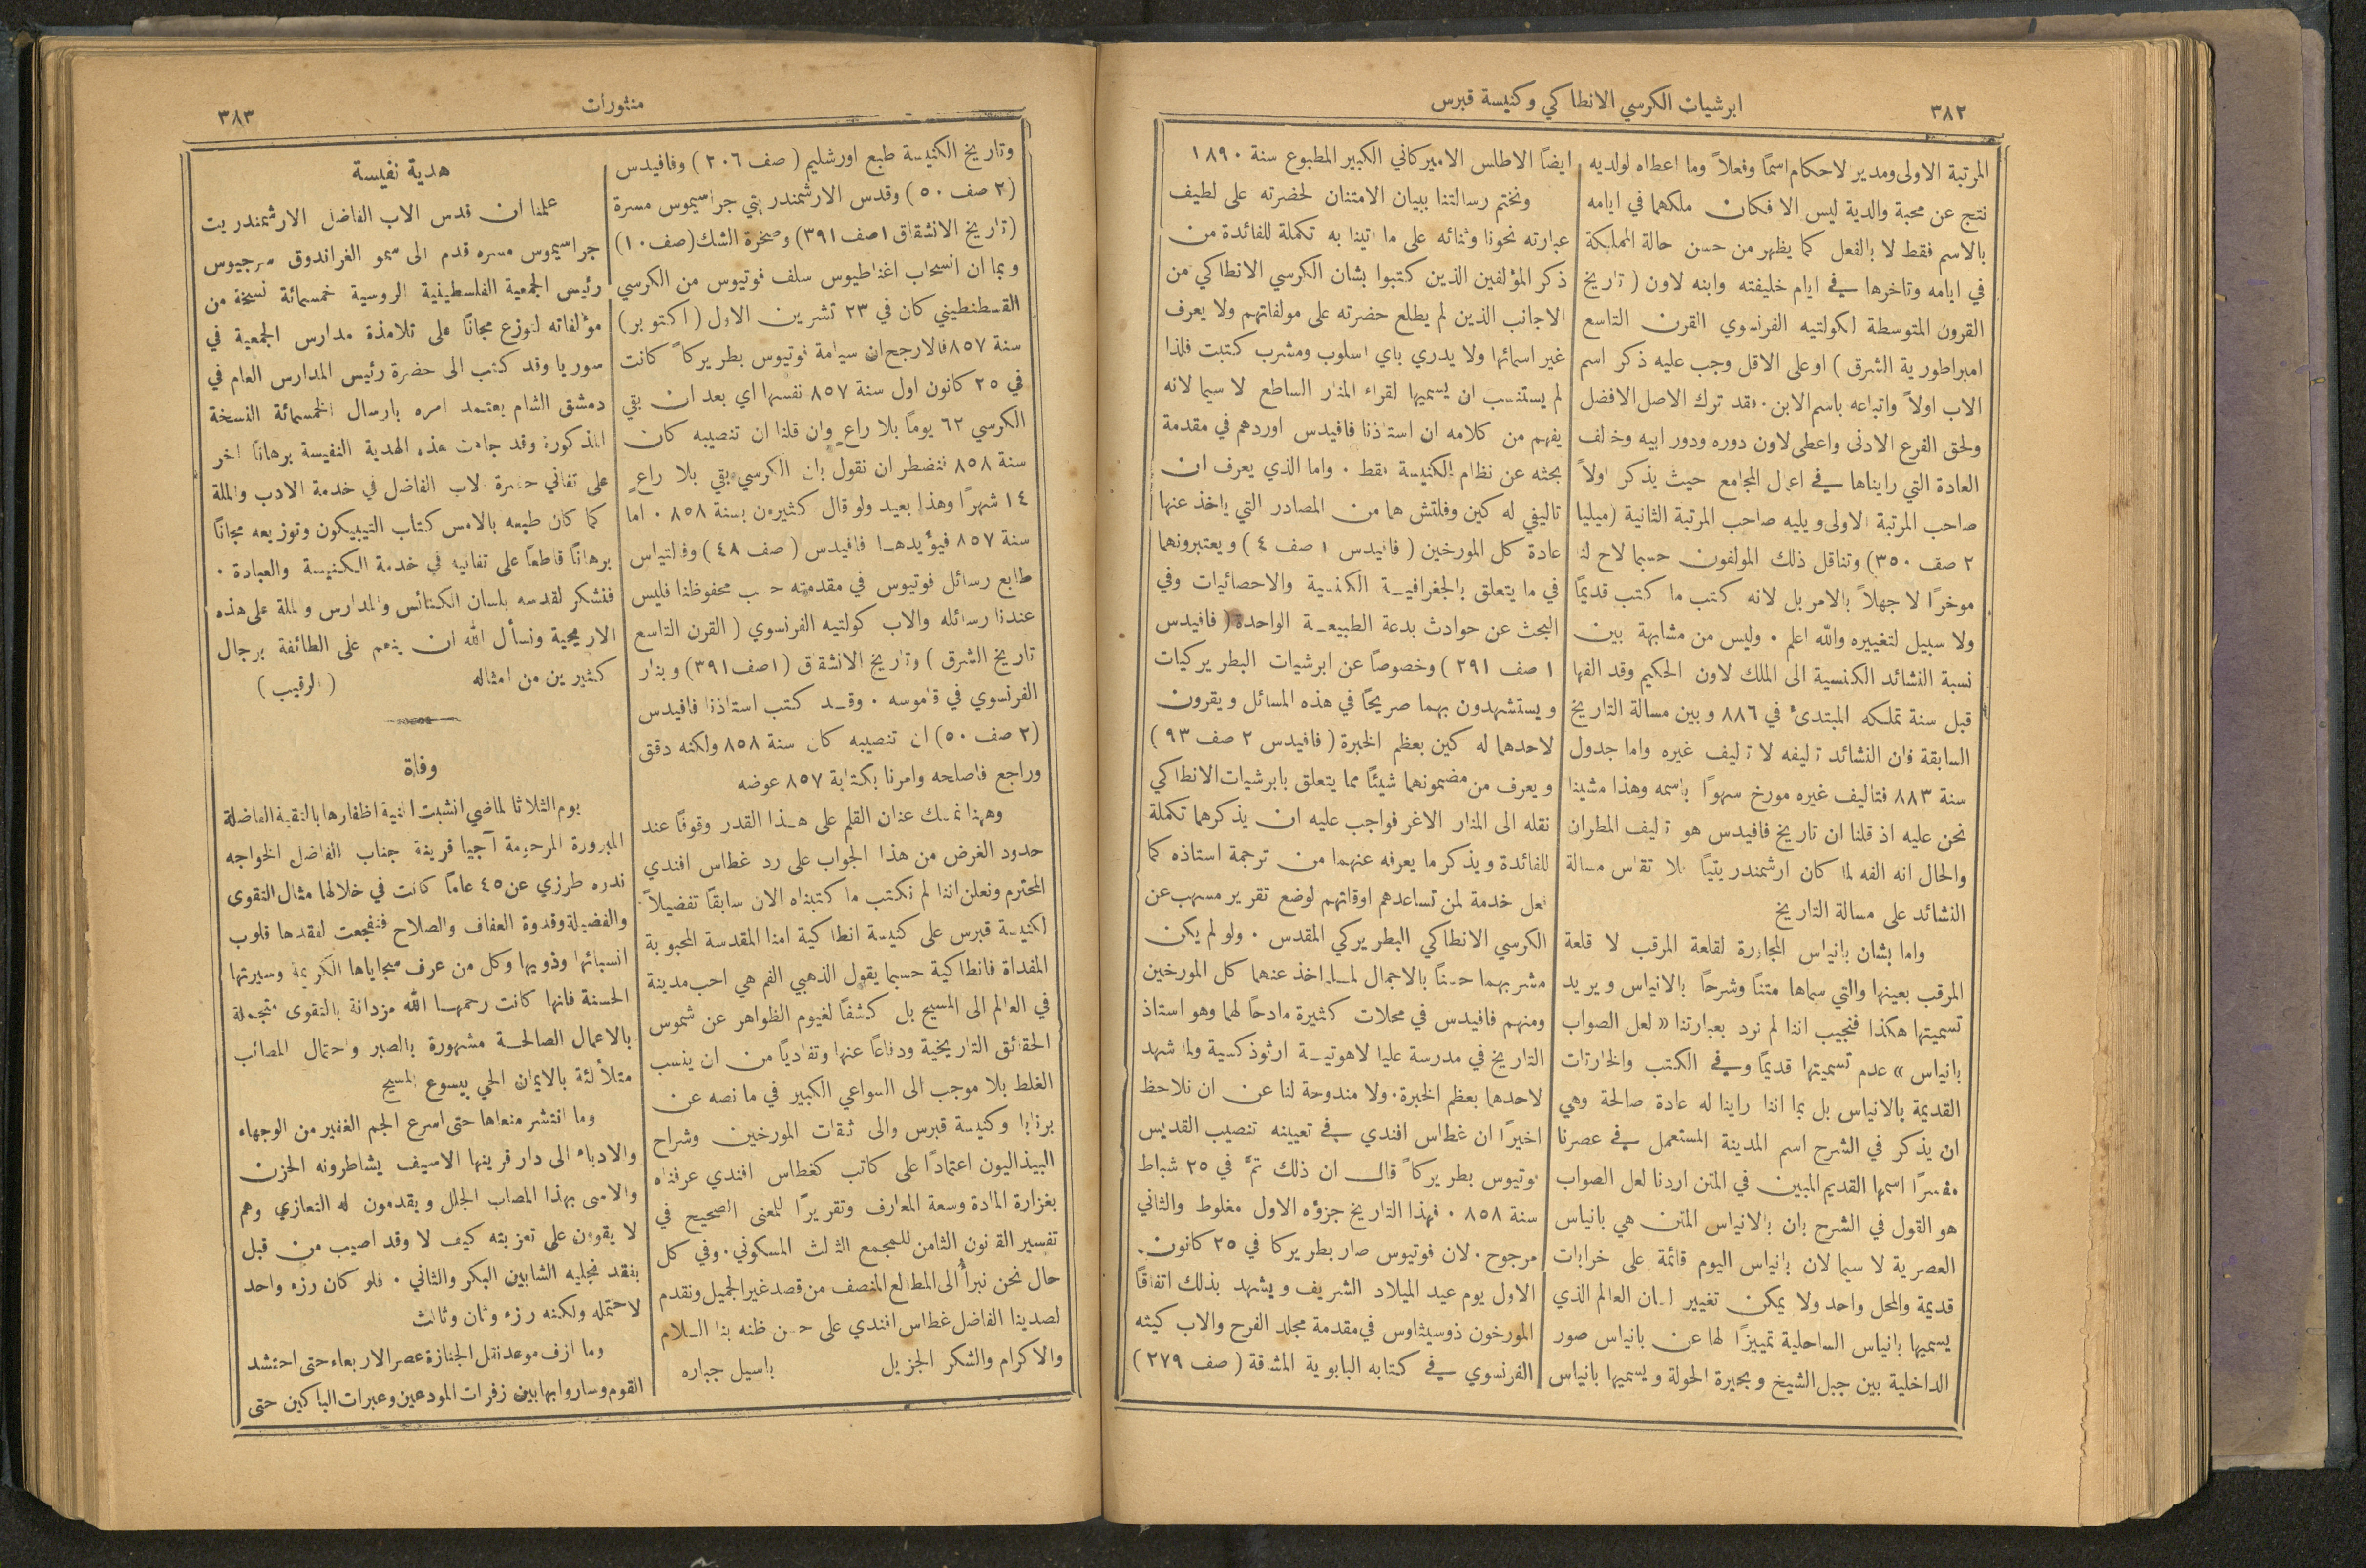 ٣٨٢
ابرشيات الكرسي الانطاكي وكنيسة قبرس
المرتبة الاولى ومدير لاحكام اسمًا وفعلاً وما اعطاه لولديه
نتج عن محبة والدية ليس الا فكان ملكهما في ايامه
بالاسم فقط لا بالفعل كما يظهر من حسن حالة المملكة
في ايامه وتاخرها في ايام خليفته وابنه لاون ( تاريخ
القرون المتوسطة لكولتيه الفرنسوي القرن التاسع
امبراطورية الشرق ) او على الاقل وجب عليه ذكر اسم
الاب اولاً واتباعه باسم الابن . فقد ترك الاصل الافضل
ولحق الفرع الادنى واعطى لاون دوره ودور ابيه وخالف
العادة التي رايناها في اعمال المجامع حيث يذكر اولاً
صاحب المرتبة الاولى ويليه صاحب المرتبة الثانية (ميليا
٢ صف ٣٥٠) وتناقل ذلك المولفون حسبما لاح لنا
موخرًا لا جهلاً بالامر بل لانه كتب ما كتب قديمًا
ولا سبيل لتغييره والله اعلم . وليس من مشابهة بين
نسبة النشائد الكنسية الى الملك لاون الحكيم وقد الفها
قبل سنة تملكه المبتدئ في ٨٨٦ وبين مسالة التاريخ
السابقة فان النشائد تاليفه لا تاليف غيره واما جدول
سنة ٨٨٣ فتاليف غيره مورخ سهوًا باسمه وهذا مشينا
نحن عليه اذ قلنا ان تاريخ فافيدس هو تاليف المطران
والحال انه الفه لما كان ارشمندريتيًا فلا تقاس مسالة
النشائد على مسالة التاريخ
واما بشان بانياس المجاورة لقلعة المرقب لا قلعة
المرقب بعينها والتي سماها متنًا وشرحًا بالانياس ويريد
تسميتها هكذا فنجيب اننا لم نرد بعبارتنا « لعل الصواب
بانياس » عدم تسميتها قديمًا وفي الكتب والخارتات
القديمة بالانياس بل بما اننا راينا له عادة صالحة وهي
ان يذكر في الشرح اسم المدينة المستعمل في عصرنا
مفسرًا اسمها القديم المبين في المتن اردنا لعل الصواب
هو القول في الشرح بان بالانياس المتن هي بانياس
العصرية لا سيما لان بانياس اليوم قائمة على خرابات
قديمة والمحل واحد ولا يمكن تغيير لسان العالم الذي
يسميها بانياس الساحلية تمييزًا لها عن بانياس صور
الداخلية بين جبل الشيخ وبحيرة الحولة ويسميها بانياس
ايضًا الاطلس الاميركاني الكبير المطبوع سنة ١٨٩٠
ونختم رسالتنا ببيان الامتنان لحضرته على لطيف
عبارته نحونا وثنائه على ما اتينا به تكملة للفائدة من
ذكر المؤلفين الذين كتبوا بشان الكرسي الانطاكي من
الاجانب الذين لم يطلع حضرته على مولفاتهم ولا يعرف
غير اسمائها ولا يدري باي اسلوب ومشرب كتبت فلذا
لم يستنسب ان يسميها لقراء المنار الساطع لا سيما لانه
يفهم من كلامه ان استاذنا فافيدس اوردهم في مقدمة
بحثه عن نظام الكنيسة فقط . واما الذي يعرف ان
تاليفي له كين وفلتش هما من المصادر التي ياخذ عنها
عادة كل المورخين ( فافيدس ١ صف ٤ ) ويعتبرونهما
في ما يتعلق بالجغرافية الكنسية والاحصائيات وفي
البحث عن حوادث بدعة الطبيعة الواحدة ( فافيدس
١ صف ٢٩١ ) وخصوصًا عن ابرشيات البطريركيات
ويستشهدون بهما صريحًا في هذه المسائل ويقرون
لاحدهما له كين بعظم الخبرة ( فافيدس ٢ صف ٩٣ )
ويعرف من مضمونهما شيئًا مما يتعلق بابرشيات الانطاكي
نقله الى المنار الاغر فواجب عليه ان يذكرهما تكملة
للفائدة ويذكر ما يعرفه عنهما من ترجمة استاذه كما
فعل خدمة لمن تساعدهم اوقاتهم لوضع تقرير مسهب عن
الكرسي الانطاكي البطريركي المقدس . ولو لم يكن
مشربهما حسنًا بالاجمال لما اخذ عنهما كل المورخين
ومنهم فافيدس في محلات كثيرة مادحًا لهما وهو استاذ
التاريخ في مدرسة عليا لاهوتية ارثوذكسية ولما شهد
لاحدهما بعظم الخبرة . ولا مندوحة لنا عن ان نلاحظ
اخيرًا ان غطاس افندي في تعيينه تنصيب القديس
فوتيوس بطريركاً قال ان ذلك تمَّ في ٢٥ شباط
سنة ٨٥٨ . فهذا التاريخ جزؤه الاول مغلوط والثاني
مرجوح . لان فوتيوس صار بطريركا في ٢٥ كانون
الاول يوم عيد الميلاد الشريف ويشهد بذلك اتفاقًا
المورخون ذوسيثاوس في مقدمة مجلد الفرح والاب كيثه
الفرنسوي في كتابه البابوية المشقة ( صف ٢٧٩ )
منثورات
٣٨٣
وتاريخ الكنيسة طبع اورشليم ( صف ٢٠٦ ) وفافيدس
(٢ صف ٥٠ ) وقدس الارشمندريتي جراسيموس مسرة
(تاريخ الانشقاق ١ صف ٣٩١) وصخرة الشك (صف ١٠)
وبما ان انسحاب اغناطيوس سلف فوتيوس من الكرسي
القسطنطيني كان في ٢٣ تشرين الاول ( اكتوبر )
سنة ٨٥٧ فالارجح ان سيامة فوتيوس بطريركاً كانت
في ٢٥ كانون اول سنة ٨٥٧ نفسها اي بعد ان بقي
الكرسي ٦٢ يومًا بلا راعٍ وان قلنا ان تنصيبه كان
سنة ٨٥٨ فنضطر ان نقول بان الكرسي بقي بلا راعٍ
١٤ شهرًا وهذا بعيد ولو قال كثيرون بسنة ٨٥٨ . اما
سنة ٨٥٧ فيؤيدها فافيدس ( صف ٤٨ ) وفالتياس
طابع رسائل فوتيوس في مقدمته حسب محفوظنا فليس
عندنا رسائله والاب كولتيه الفرنسوي ( القرن التاسع
تاريخ الشرق ) وتاريخ الانشقاق ( ١ صف ٣٩١ ) وبنار
الفرنسوي في قاموسه . وقد كتب استاذنا فافيدس
(٢ صف ٥٠) ان تنصيبه كان سنة ٨٥٨ ولكنه دقق
وراجع فاصلحه وامرنا بكتابة ٨٥٧ عوضه
وههنا نمسك عنان القلم على هذا القدر وقوفًا عند
حدود الغرض من هذا الجواب على رد غطاس افندي
المحترم ونعلن اننا لم نكتب ما كتبناه الان سابقًا تفضيلاً
لكنيسة قبرس على كنيسة انطاكية امنا المقدسة المحبوبة
المفداة فانطاكية حسبما يقول الذهبي الفم هي احب مدينة
في العالم الى المسيح بل كشفًا لغيوم الظواهر عن شموس
الحقائق التاريخية ودفاعًا عنها وتفاديًا من ان ينسب
الغلط بلا موجب الى السواعي الكبير في ما نصه عن
برنابا وكنيسة قبرس والى ثقات المورخين وشراح
البيذاليون اعتمادًا على كاتب كغطاس افندي عرفناه
بغزارة المادة وسعة المعارف وتقريرًا للمعنى الصحيح في
تفسير القانون الثامن للمجمع الثالث المسكوني . وفي كل
حال نحن نبرأُ الى المطالع المنصف من قصد غير الجميل ونقدم
لصدينا الفاضل غطاس افندي على حسن ظنه بنا السلام
والاكرام والشكر الجزيل باسيل جباره
هدية نفيسة
علمنا ان قدس الاب الفاضل الارشمندريت
جراسيموس مسره قدم الى سمو الغراندوق سرجيوس
رئيس الجمعية الفلسطينية الروسية خمسمائة نسخة من
مؤلفاته لتوزع مجانًا على تلامذة مدارس الجمعية في
سوريا وقد كتب الى حضرة رئيس المدارس العام في
دمشق الشام يعتمد امره بارسال الخمسمائة النسخة
المذكورة وقد جاءت هذه الهدية النفيسة برهانًا اخر
على تفاني حضرة الاب الفاضل في خدمة الادب والملة
كما كان طبعه بالامس كتاب التيبيكون وتوزيعه مجانًا
برهانًا قاطعًا على تفانيه في خدمة الكنيسة والعبادة .
فنشكر لقدسه بلسان الكنائس والمدارس والملة على هذه
الاريحية ونسأل الله ان ينعم على الطائفة برجال
كثيرين من امثاله ( الرقيب )
وفاة
يوم الثلاثا لماضي انشبت المنية اظفارها بالتقية الفاضلة
المبرورة المرحومة آجيا قرينة جناب الفاضل الخواجه
ندره طرزي عن ٤٥ عامًا كانت في خلالها مثال التقوى
والفضيلة وقدوة العفاف والصلاح فتفجعت لفقدها قلوب
انسبائها وذويها وكل من عرف سجاياها الكريمة وسيرتها
الحسنة فانها كانت رحمها الله مزدانة بالتقوى متجملة
بالاعمال الصالحة مشهورة بالصبر واحتمال المصائب
متلألئة بالايمان الحي بيسوع المسيح
وما انتشر منعاها حتى اسرع الجم الغفير من الوجهاء
والادباء الى دار قرينها الاسيف يشاطرونه الحزن
والاسى بهذا المصاب الجلل ويقدمون له التعازي وهم
لا يقوون على تعزيته كيف لا وقد اصيب من قبل
بفقد نجليه الشابين البكر والثاني . فلو كان رزء واحد
لاحتمله ولكنه رزء وثان وثالث
وما ازف موعد نقل الجنازة عصر الاربعاء حتى احتشد
القوم وساروا بها بين زفرات المودعين وعبرات الباكين حتى